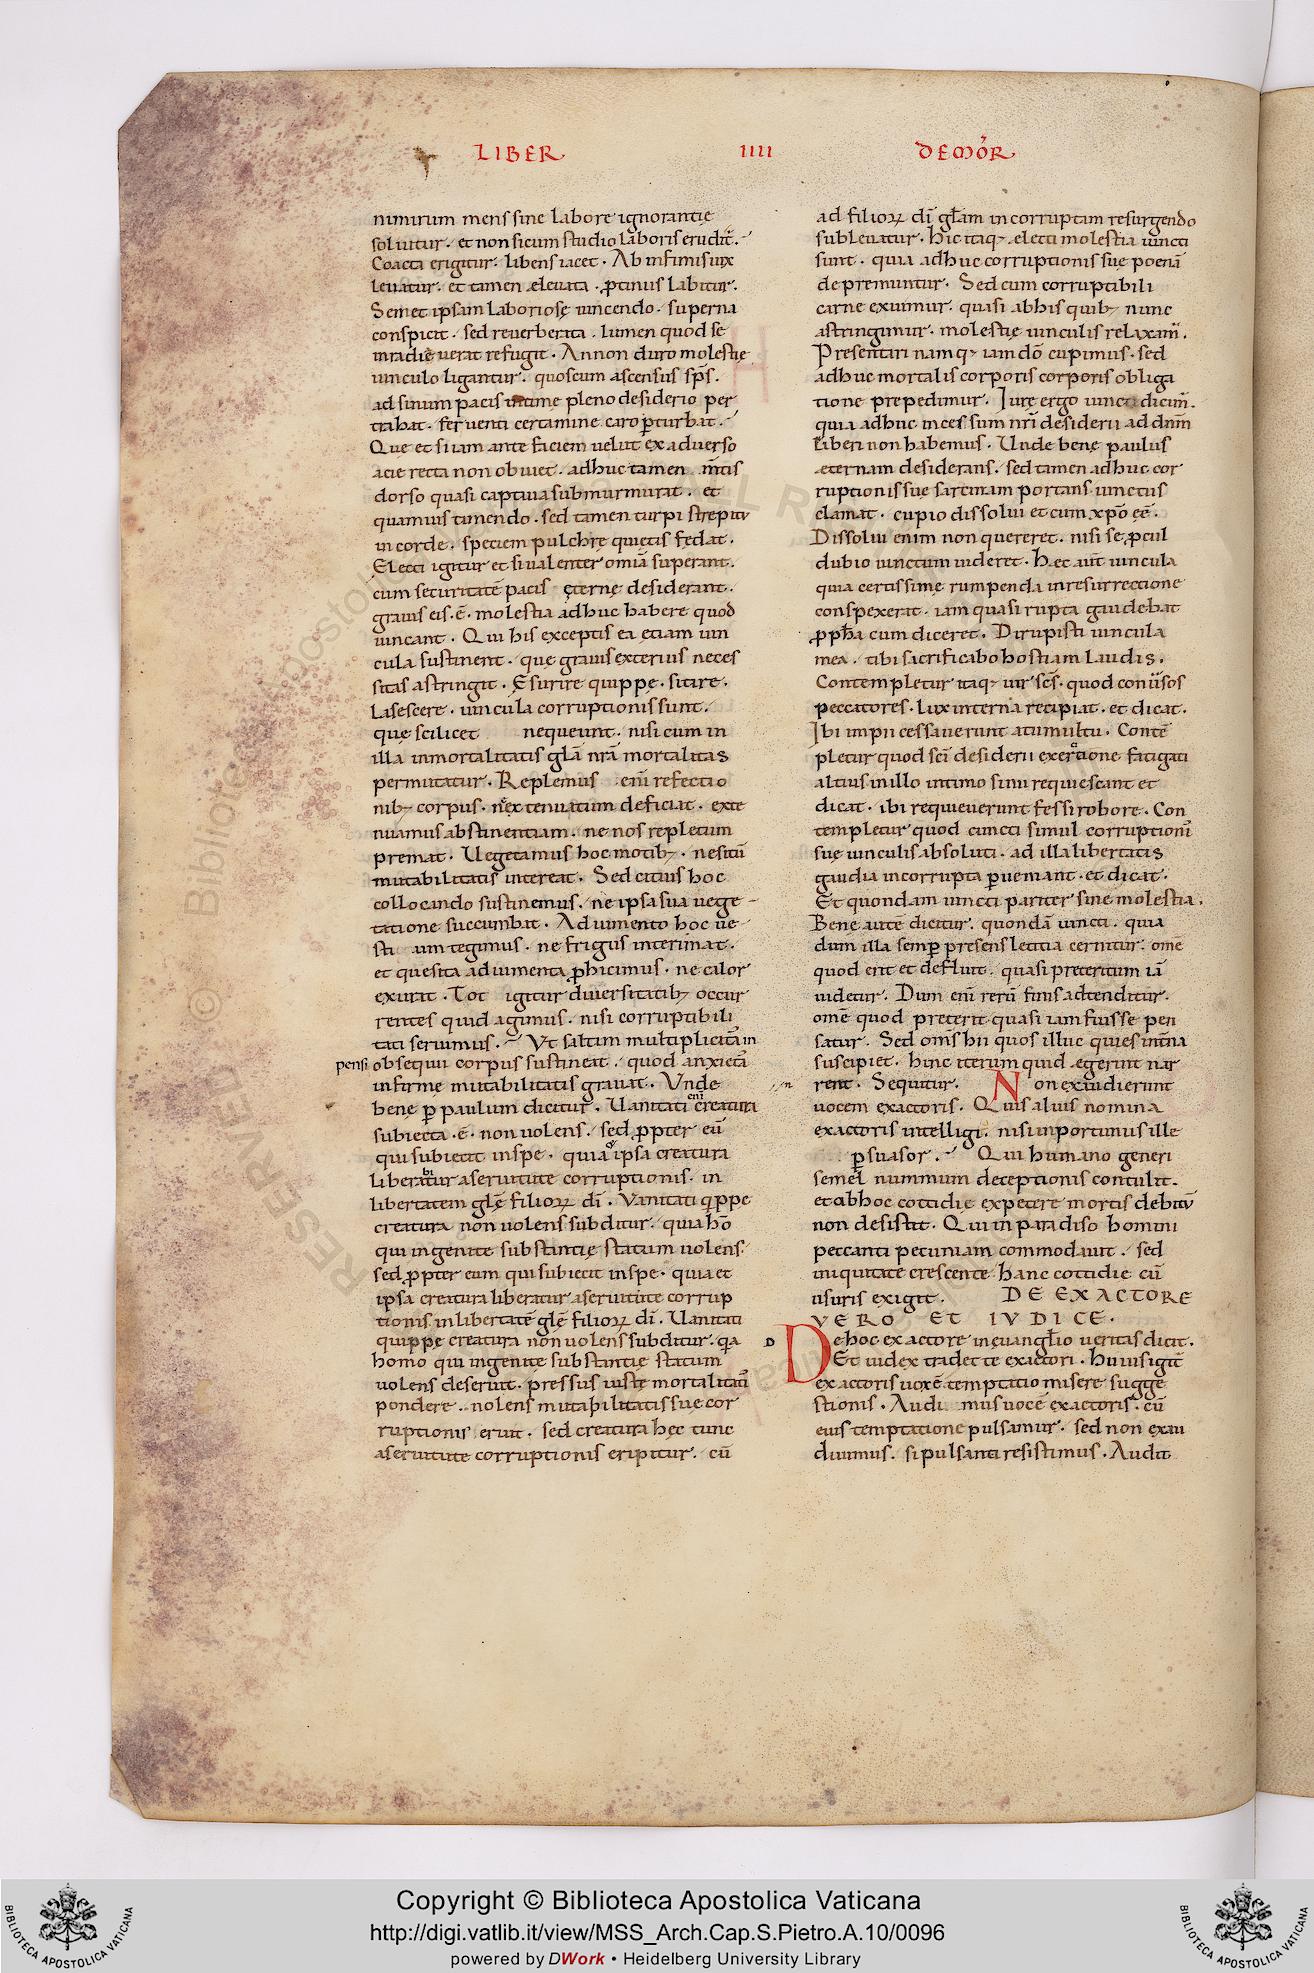 LIBER IIII DE MOR̄
nimirum mens sine labore ignorantię
soluitur. et non sicum studio laboris erudit̄.
Coacta erigitur. libens iacet. Ab infimis uix
leuatur. et tamen eleuata. ꝓtinus labitur.
Semet ipsam laboriosę uincendo. superna
conspicit. sed reuerberata. lumen quod se
inradie uerat refugit. An non duro molestię
uinculo ligantur. quos cum ascensus sp̄s.
ad sinum pacis intime pleno desiderio per
trahat. fer uenti certamine caro ꝑturbat.
Que et si iam ante faciem uelut ex aduerso
acie recta non obuiet. adhuc tamen m̄tis
dorso quasi captiua submurmurat. et
quamuis timendo. sed tamen turpi strepitu
in corde. speciem pulchrę quietis fędat.
Electi igitur et si ualenter omīa superant.
cum securitatē pacis ęternę desiderant.
grauis eis. ē. molestia adhuc habere quod
uincant. Qui his exceptis ea etiam uin
cula sustinent. quę grauis exterius neces
sitas astringit. Esurire quippe. sitire.
lasescere. uincula corruptionis sunt.
quę scilicet nequeunt. nisi cum in
illa inmortalitatis glā nr̄a mortalitas
permutatur. Replemus enī refectio
nibꝫ corpus. n̄ ex tenuatum deficiat. exte
nuamus abstinentiam. ne nos repletum
premat. Uegetamus hoc motibꝫ. ne sitū
mutabilitatis intereat. Sed citius hoc
collocando sustinemus. ne ipsa sua uege
tatione succumbat. Ad uimento hoc ue
sti um tegimus. ne frigus interimat.
et quesita adiumenta ꝓhicimus. ne calor
exurat. Tot igitur diuersitatibꝫ occur
rentes quid agimus. nisi corruptibili
tati seruimus. Vt saltim multiplicitā in
pensi obsequii corpus sustineat. quod anxietā
infirmę mutabilitatis grauat. Vnde
bene ꝑ paulum dicitur. Uanitati enī creatura
subiecta. ē. non uolens. sed ꝓpter eū
qui subiecit in spe. quia ipsa creatura
liberabitur a seruitute corruptionis. in
libertatem glę filioꝝ dī. Vanitati qꝓppe
creatura non uolens subditur. quia hō
qui ingenite substantię statum uolens.
sed ꝓpter eum qui subiecit in spe. quia et
ipsa creatura liberatur a seruitute corrup
tionis in libertatē glę filioꝝ dī. Uanitati
quippe creatura non uolens subditur. qa
homo qui ingenite substantię statum
uolens deseruit. pressus iuste mortalitatī
pondere. nolens mutabilitatis suę cor
ruptionis eruit. sed creatura hęc tunc
a seruitute corruptionis eripitur. cū
ad filioꝝ dī glām incorruptam resurgendo
subleuatur. Hic itaqꝫ. electi molestia uincti
sunt. quia adhuc corruptionis suę poenā
de premuntur. Sed cum corruptibili
carne exuimur. quasi ab his quibꝫ nunc
astringimur. molestię uinculis relaxam̄.
Presentari namqꝫ iam dō cupimus. sed
adhuc mortalis corporis corporis obliga
tione prepedimur. Iurę ergo uincti dicim̄.
quia adhuc incessum nr̄i desiderii ad dn̄m
liberi non habemus. Unde bene paulus
eternam desiderans. sed tamen adhuc cor
ruptionis sue sarcinam portans uinctus
clamat. cupio dissolui et cum xp̄o eē.
Dissolui enim non quereret. nisi se ꝓcul
dubio uinctum uideret. Hec aut̄ uincula
quia certissime rumpenda in resurrectione
conspexerat. iam quasi rupta gaudebat
ꝓph̄a cum diceret. Dirupisti uincula
mea. tibi sacrificabo hostiam laudis.
Contempletur itaqꝫ uir sc̄s. quod conūsos
peccatores. lux interna recipiat. et dicat.
Ibi impii cessauerunt a tumultu. Contē
pletur quod scī desiderii exercitione fatigati
altius in illo intimo sinu requiescant et
dicat. ibi requieuerunt fessi robore. Con
templetur quod cuncti simul corruptionī
suę uinculis absoluti. ad illa libertatis
gaudia incorrupta ꝑueniant. et dicat.
Et quondam uincti pariter sine molestia.
Bene autē dicitur. quondā uincti. quia
dum illa semꝑ presens letitia cernitur. omē
quod erit et defluit. quasi preteritum iā
uidetur. Dum enī rerū finis adtenditur.
omē quod preterit quasi iam fuisse pen
satur. Sed om̄s hii quos illuc quies int̄na
suscipiet. hinc iterum quid egerint nar
rent. Sequitur. Non exaudierunt
uocem exactoris. Quis alius nomina
exactoris intelligi. nisi inportunus ille
ꝑsuasor. Qui humano generi
semel nummum deceptionis contulit.
et ab hoc cottidie expetere mortis debitū
non desistit. Qui in paradiso homini
peccanti pecuniam commodauit. sed
iniquitate crescente hanc cottidie cū
usuris exigit. DE EXACTORE
VERO ET IVDICE.
D De hoc exactore in euanglio ueritas dicit.
Et iudex tradet te exactori. Huius igit̄
exactoris uox ē temptatio misere sugge
stionis. Audi mus uocē exactoris. cū
eius temptatione pulsamur. sed non exau
diuimus. si pulsanti resistimus. Audit
Copyright © Biblioteca Apostolica Vaticana
http://digi.vatlib.it/view/MSS_Arch.Cap.S.Pietro.A.10/0096
powered by DWork • Heidelberg University Library
BIBLIOTECA APOSTOLICA VATICANA
BIBLIOTECA APOSTOLICA VATICANA